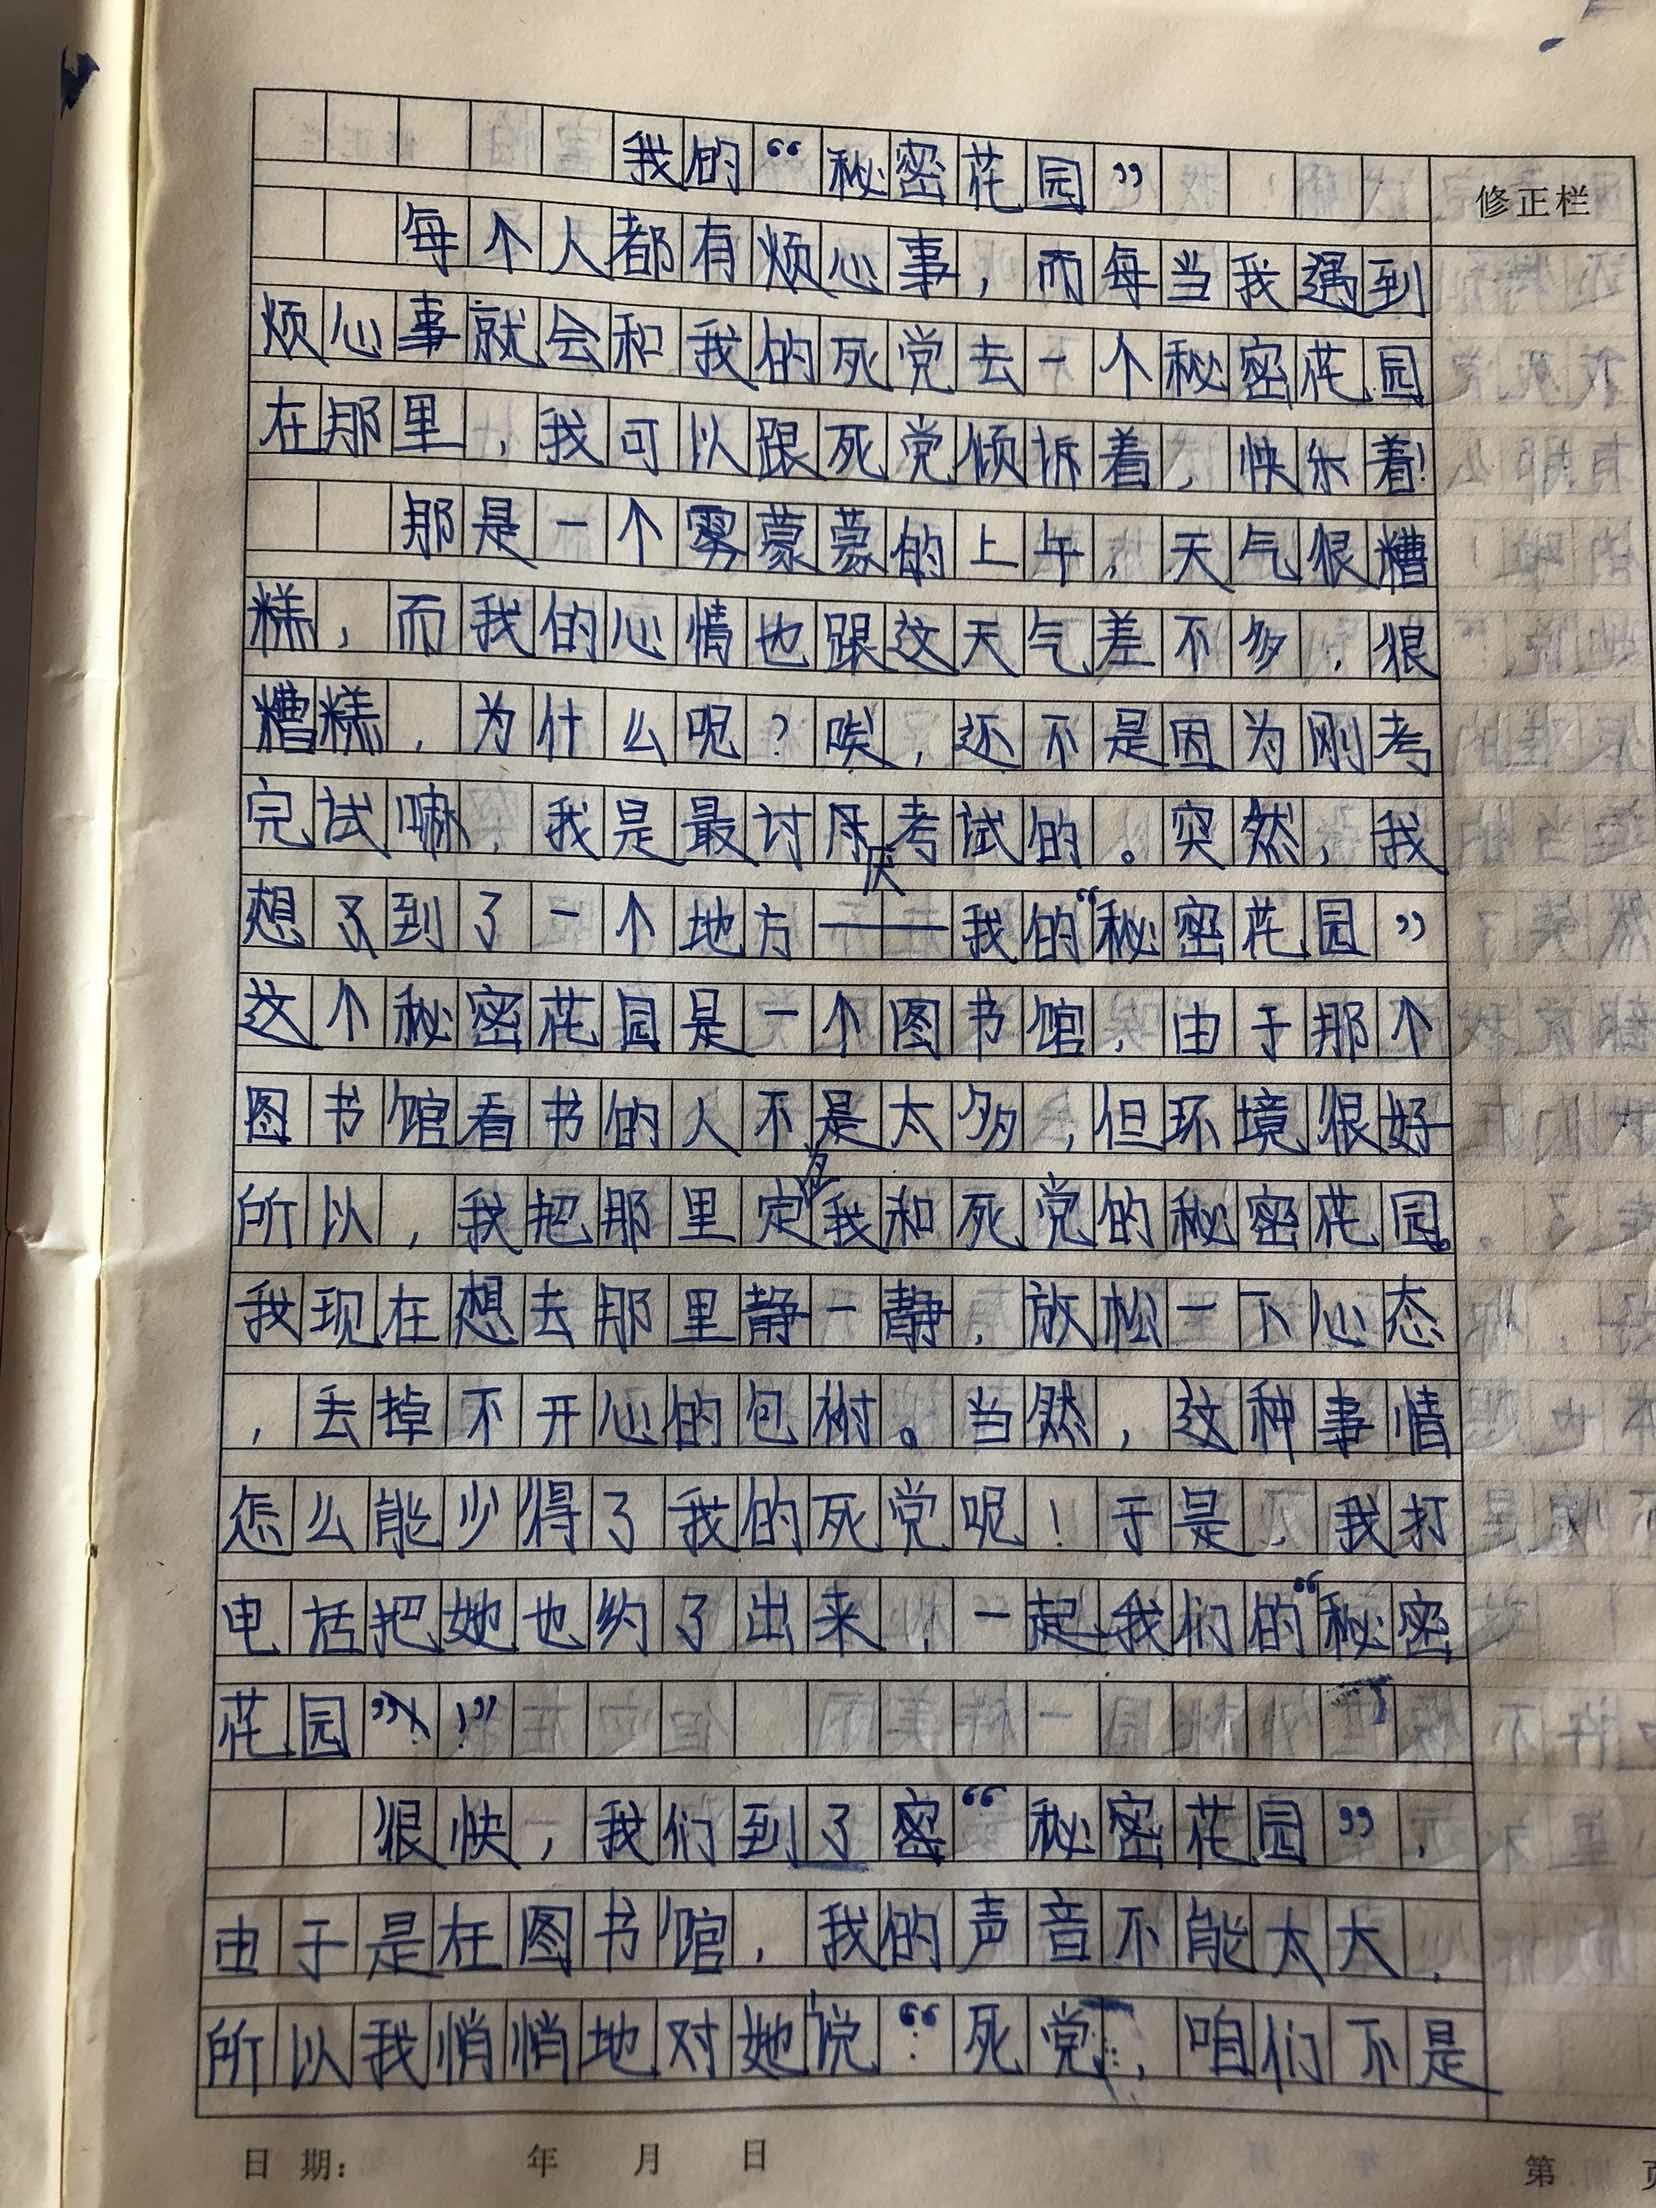 我的“秘密花园”
修正栏
每个人都有烦心事，而每当我遇到
烦心事就会和我的死党去一个秘密花园
在那里，我可以跟死党倾诉着，快乐着！
那是一个雾蒙蒙的上午，天气很糟
糕，而我的心情也跟这天气差不多，很
糟糕，为什么呢？唉，还不是因为刚考
完试嘛，我是最讨厌考试的。突然，我
想到了一个地方——我的“秘密花园”
这个秘密花园是一个图书馆，由于那个
图书馆看书的人不是太多，但环境很好
所以，我把那里定为我和死党的秘密花园。
我现在想去那里静一静，放松一下心态
，丢掉不开心的包袱。当然，这种事情
怎么能少得了我的死党呢！于是，我打
电话把她也约了出来，一起我们的“秘密
花园”！”
很快，我们到了“秘密花园”，
由于是在图书馆，我的声音不能太大，
所以我悄悄地对她说：“死党，咱们不是
日期： 年 月 日
第 页